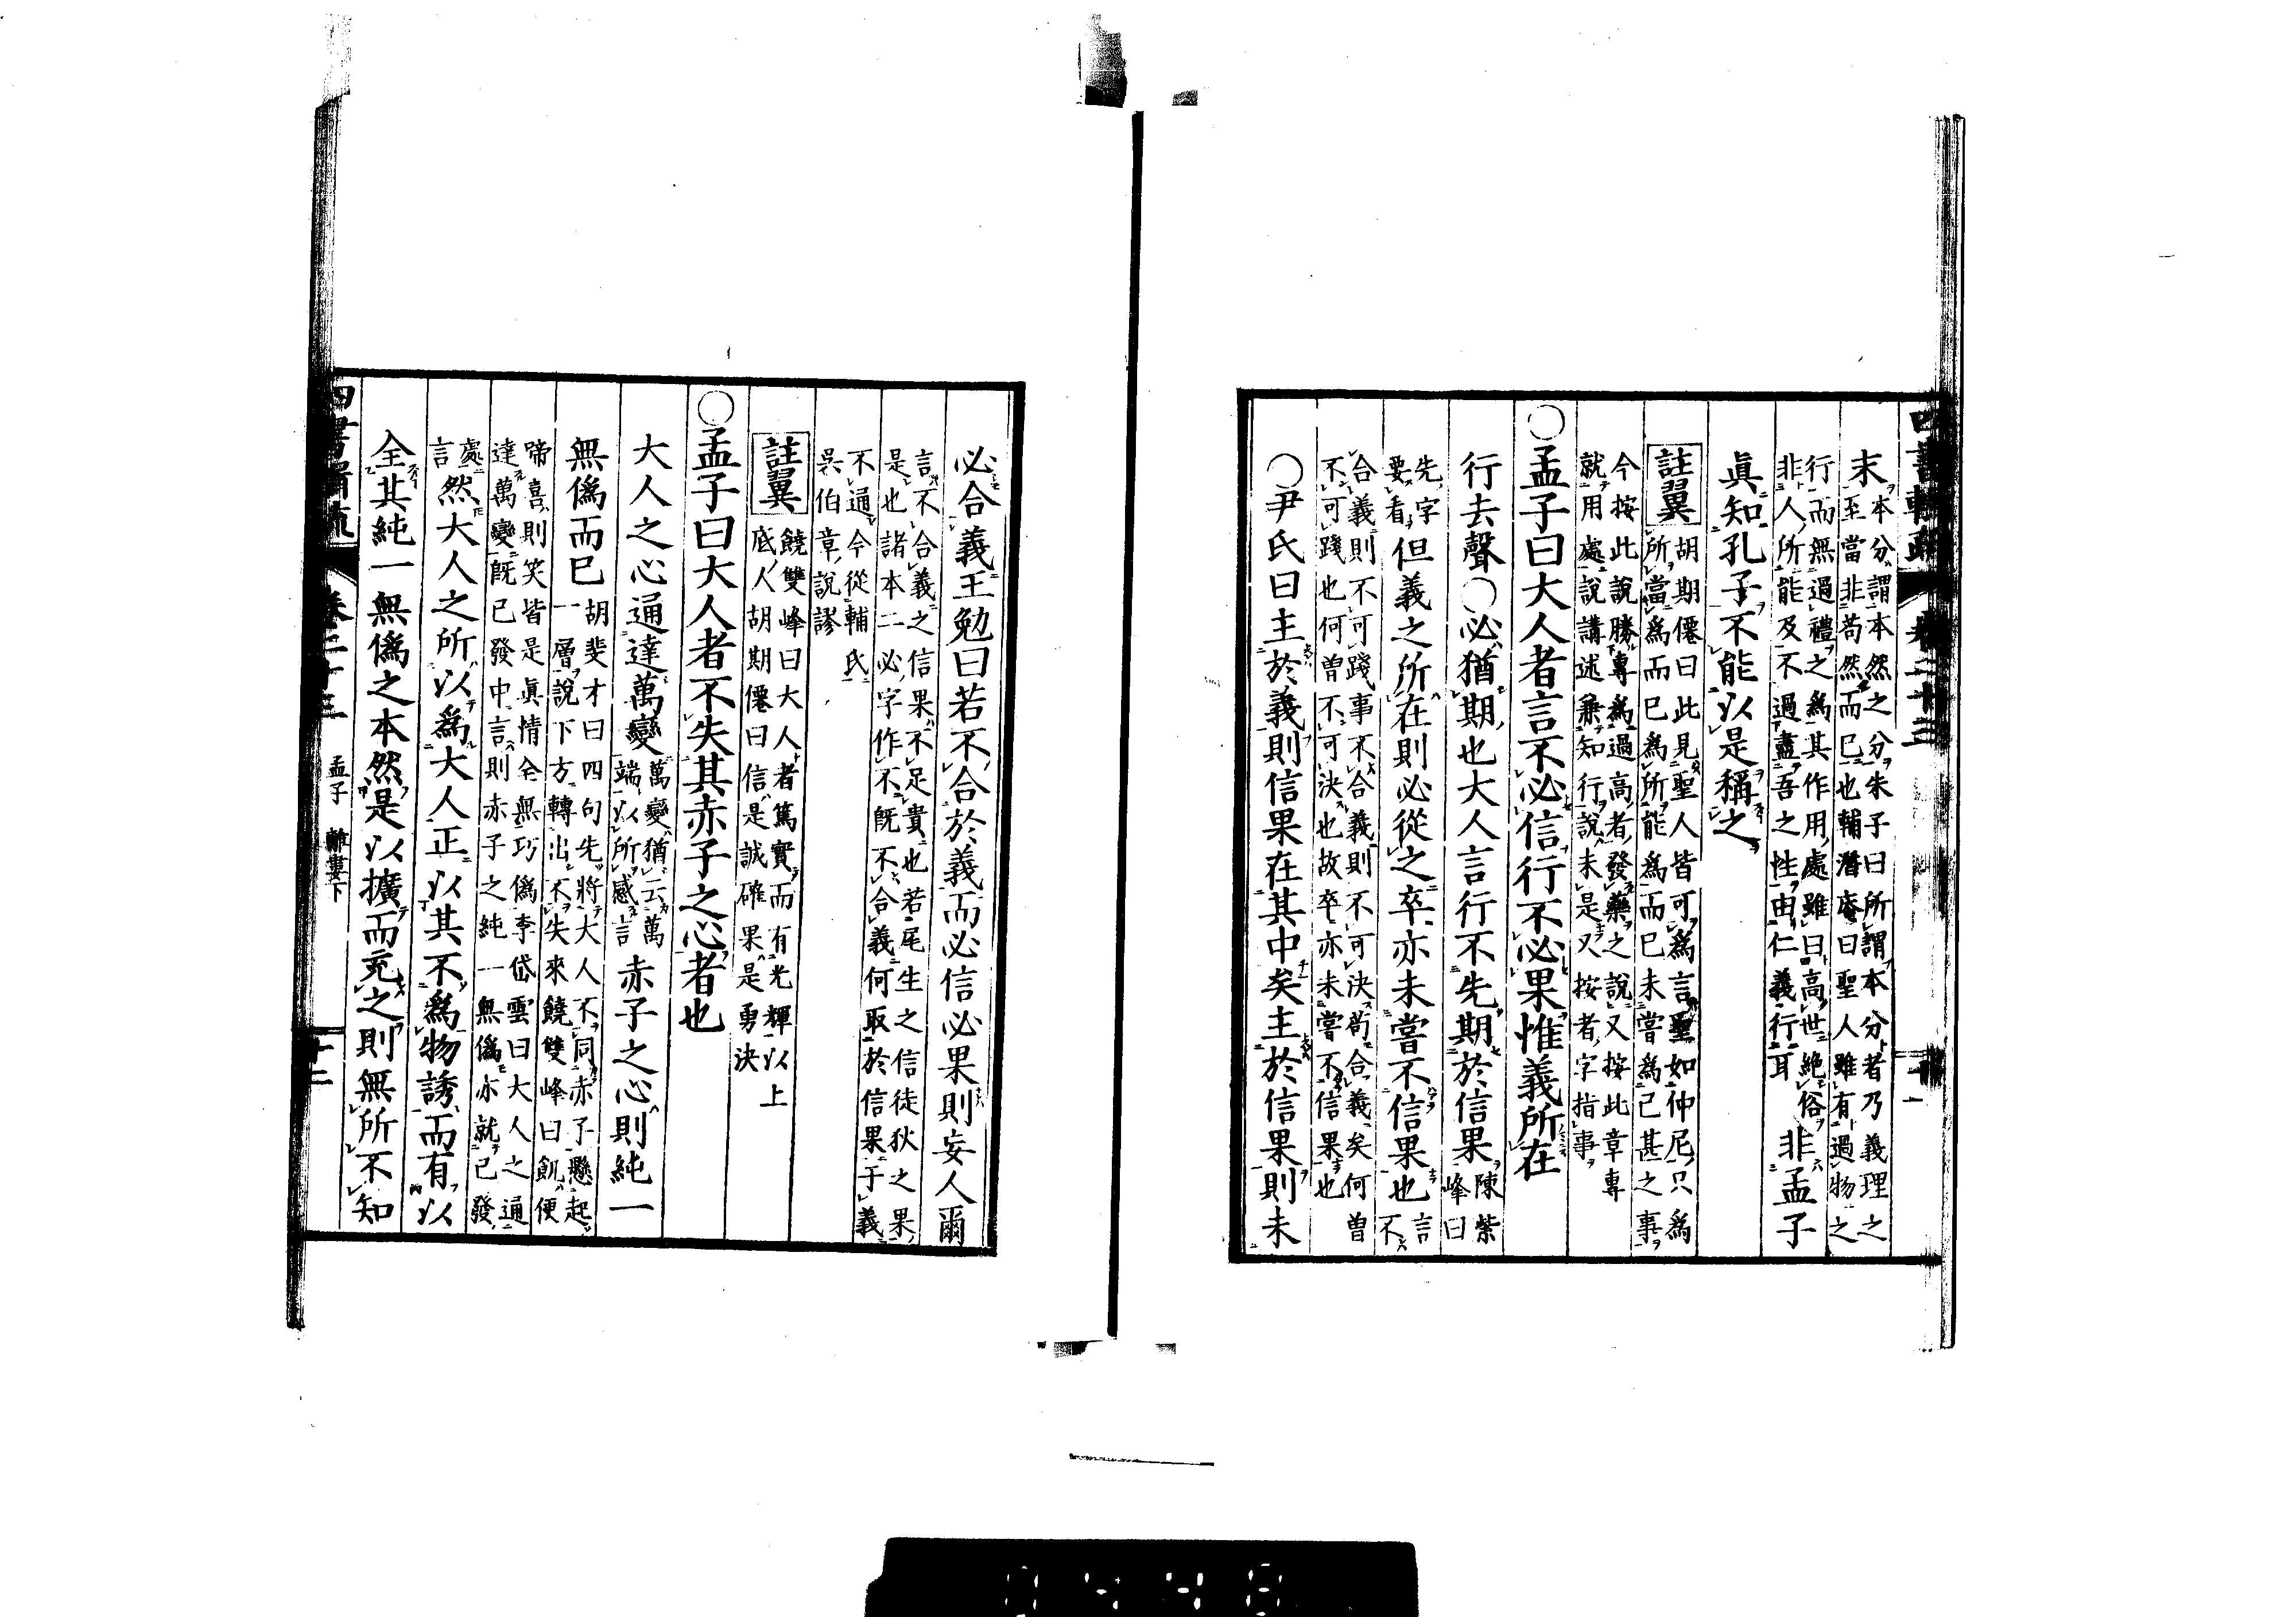 四書輯疏 卷二十三
末 本分謂本然之分朱子曰所謂本分者乃義理之
至當非苟然而已也輔潛庵曰聖人雖有過物之
行而無過禮之爲其作用處雖曰高世絶俗
非人所能及不過盡吾之性由仁義行耳 非孟子
眞知孔子不能以是稱之
註翼 胡期僊曰此見聖人皆可爲言聖如仲尼只爲
所當爲而已爲所能爲而已未嘗爲已甚之事
今按此說勝專爲過高者發藥之說又按此章專
就用處說講述兼知行說未是又按者字指事
○孟子曰大人者言不必信行不必果惟義所在
行去聲○必猶期也大人言行不先期於信果 陳紫
峰曰
先字
要看 但義之所在則必從之卒亦未嘗不信果也 言
不
合義則不可踐事不合義則不可決苟合義矣何曾
不可踐也何曾不可決也故卒亦未嘗不信果也
○尹氏曰主於義則信果在其中矣主於信果則未
必合義王勉曰若不合於義而必信必果則妄人爾
言不合義之信果不足貴也若尾生之信徒狄之果
是也諸本二必字作不既不合義何取於信果于義
不通今從輔氏
吳伯章說謬
註翼 饒雙峰曰大人者篤實而有光輝以上
底人胡期僊曰信是誠確果是勇決
○孟子曰大人者不失其赤子之心者也
大人之心通達萬變 萬變猶云萬
端以所感言 赤子之心則純一
無僞而已 胡斐才曰四句先將大人不同赤子懸起
一層說下方轉出不失來饒雙峰曰飢便
啼喜則笑皆是眞情全無巧僞李岱雲曰大人之通
達萬變既已發中言則赤子之純一無僞亦就已發
處
言 然大人之所以爲大人正以其不爲物誘而有以
全其純一無僞之本然是以擴而充之則無所不知
四書輯疏 卷二十三 孟子 離婁下 十二